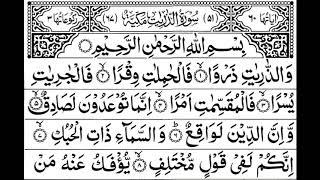 اٰیاتها ٦٠ (٥١) سُوْرَةُ الذّٰرِيٰتِ مَكِّيَّةٌ (٦٧) رُكُوْعَاتُهَا ٣
بِسْمِ اللّٰهِ الرَّحْمٰنِ الرَّحِيْمِ
وَالذّٰرِيٰتِ ذَرْوًا ۙ﴿١﴾ فَالْحٰمِلٰتِ وِقْرًا ۙ﴿٢﴾ فَالْجٰرِيٰتِ
يُسْرًا ۙ﴿٣﴾ فَالْمُقَسِّمٰتِ اَمْرًا ۙ﴿٤﴾ اِنَّمَا تُوْعَدُوْنَ لَصَادِقٌ ۙ﴿٥﴾
وَّاِنَّ الدِّيْنَ لَوَاقِعٌ ؕ﴿٦﴾ وَالسَّمَآءِ ذَاتِ الْحُبُكِ ۙ﴿٧﴾
اِنَّكُمْ لَفِيْ قَوْلٍ مُّخْتَلِفٍ ۙ﴿٨﴾ يُّؤْفَكُ عَنْهُ مَنْ